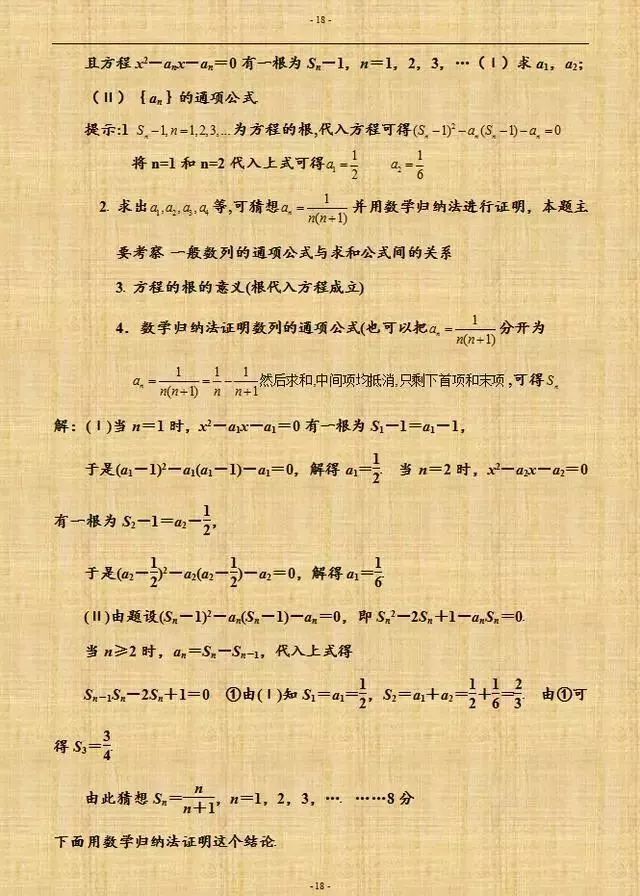 - 18 -
且方程 x²－aₙx－aₙ＝0 有一根为 Sₙ－1，n＝1，2，3，…（Ⅰ）求 a₁，a₂；
（II）｛aₙ｝的通项公式.
提示:1 Sₙ－1,n＝1,2,3,…为方程的根,代入方程可得(Sₙ－1)²－aₙ(Sₙ－1)－aₙ＝0
将 n=1 和 n=2 代入上式可得a₁＝1/2 a₂＝1/6
2. 求出a₁,a₂,a₃,a₄等,可猜想aₙ＝1/n(n+1) 并用数学归纳法进行证明，本题主
要考察 一般数列的通项公式与求和公式间的关系
3. 方程的根的意义(根代入方程成立)
4．数学归纳法证明数列的通项公式(也可以把aₙ＝1/n(n+1)分开为
aₙ＝1/n(n+1)＝1/n－1/n+1然后求和,中间项均抵消,只剩下首项和末项,可得Sₙ
解：(Ⅰ)当 n＝1 时，x²－a₁x－a₁＝0 有一根为 S₁－1＝a₁－1，
于是(a₁－1)²－a₁(a₁－1)－a₁＝0，解得 a₁＝1/2. 当 n＝2 时，x²－a₂x－a₂＝0
有一根为 S₂－1＝a₂－1/2，
于是(a₂－1/2)²－a₂(a₂－1/2)－a₂＝0，解得 a₁＝1/6.
(II)由题设(Sₙ－1)²－aₙ(Sₙ－1)－aₙ＝0，即 Sₙ²－2Sₙ＋1－aₙSₙ＝0.
当 n≥2 时，aₙ＝Sₙ－Sₙ₋₁，代入上式得
Sₙ₋₁Sₙ－2Sₙ＋1＝0 ①由(Ⅰ)知 S₁＝a₁＝1/2，S₂＝a₁＋a₂＝1/2＋1/6＝2/3. 由①可
得 S₃＝3/4.
由此猜想 Sₙ＝n/n＋1，n＝1，2，3，…. ……8 分
下面用数学归纳法证明这个结论.
- 18 -